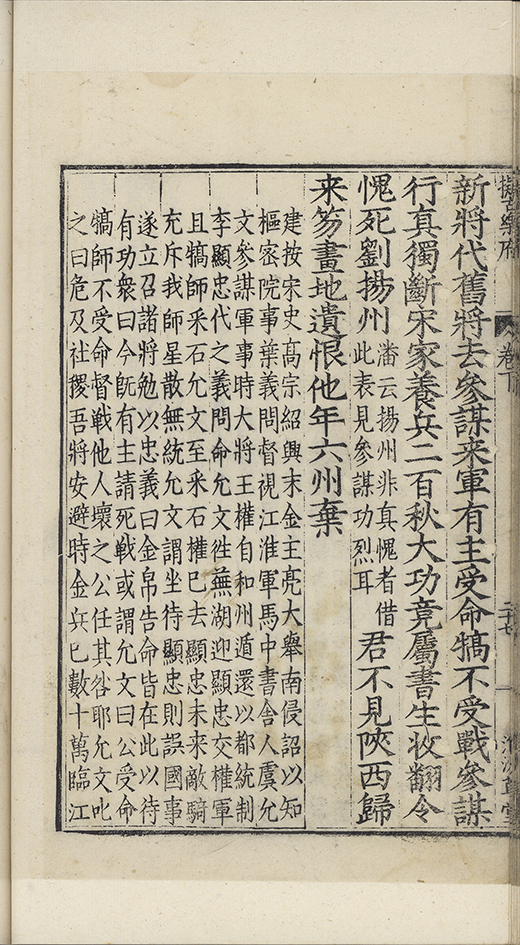 擬古樂府
卷下
二十七
新將代舊將去參謀来軍有主受命犒不受戰參謀
行真獨斷宋家養兵二百秋大功竟屬書生收翻令
愧死劉揚州潘云揚州非真愧者借此表見參謀功烈耳君不見陝西歸
来笏畫地遺恨他年六州棄
建按宋史髙宗紹興末金主亮大舉南侵詔以知
樞密院事葉義問督視江淮軍馬中書舎人虞允
文參謀軍事時大將王權自和州遁還以都統制
李顯忠代之義問命允文徃蕪湖迎顯忠交權軍
且犒師采石允文至采石權已去顯忠未来敵騎
充斥我師星散無統允文謂坐待顯忠則誤國事
遂立召諸將勉以忠義曰金帛告命皆在此以待
有功衆曰今旣有主請死戰或謂允文曰公受命
犒師不受命督戰他人壞之公任其咎耶允文叱
之曰危及社稷吾將安避時金兵已數十萬臨江